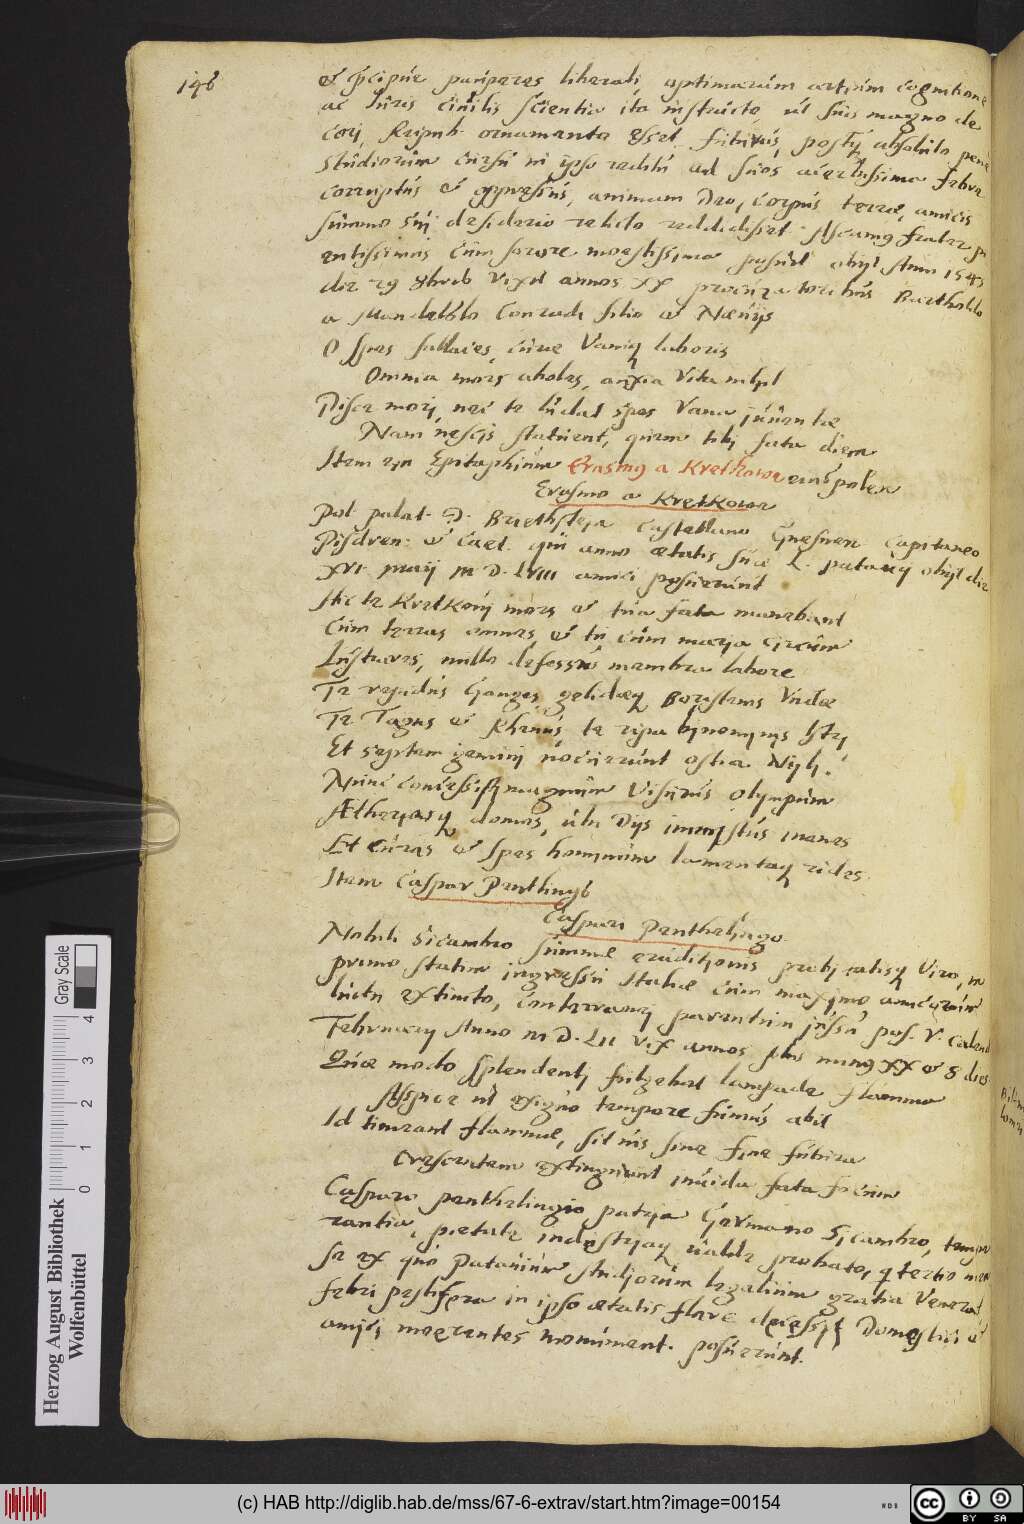 146
et p̱cipue puṕeres liberali, optimarum artium cognitione
ac Iuris ciuilis scientia ita instructo, ut suis magno de
cori, Reipub: ornamento esset futurus, postq̃ absoluto pene
studiorum cursu in ipso reditu ad suos acerbissima febre
correptus et oppressus, animam Deo, corpus terræ, amicis
summo sui desiderio relicto reddidisset. Ascanius frater
entissimus cum sorore moestissima posuit obijt Anno 1543
die 29 8breb Vixit annos XX procuratoribus Bartholdo
a Mandelslo Conradi filio et Næuijs
O spes fallaces, curæ Vaniq laboris
Omnia mors abolet, anxia Vita nihil
Disce mori, nec te ludat spes Vana iuuentæ
Nam nescis statuent, quem tibi fata diem
Item ein Epitaphium Erasmus a Kretkowa eins polen
Erasmo a Kretkowa
Pol. palat. D. Brzesthsteja Castellano Gnesnen Capitaneo
Pisdren: et Caet. qui anno ætatis suæ L. patauij obijt die
XVI maij M D. LVIII amici posuerunt
Hic te Kretkoui mors et tua fata manebant
Cum terras omnes, et tu cum maria circum
Lustrares, nullo defessus membra labore
Te rapidus Ganges, gelidæq Boristenis Vndæ
Te Tagus et Rhenus, te ripa binominis Istri
Et septem gemini nouerunt ostia Nijli.
Nunc concessisti magnum Visurus olympum
Ætheriasq domos, ubi Dijs immistus inanes
Et curas et spes hominum lamentaq rides.
Item Caspar Penthling6
Caspari Penthelingo
Nobili Sicambro summæ eruditionis probitatisq Viro, in
primo statim ingressu Italiæ cum maximo amicorum
luctu extincto, conterranei parentum iussu pos. V. Calend
Februarij Anno M D. LII Vix annos plus minus XX et 8 dies
Quæ modo splendenti fulgebat lampade flamma
Aspice ut exiguo tempore fumus abit
Id timeant flammæ, sit uis sine fine futura
Crescentem extinguunt inuida fata facem
Casparo penthelingio patria Germano Sicambro, tempe
rantia, pietate industriaq ualde probato, q tertio mense
se ex quo Patauium studiorum legalium gratia Venerat
febri pestifera in ipso ætatis flore decessit Domestici et
amici moerentes monument. posuerunt.
Herzog August Bibliothek
Wolfenbüttel
0 1 2 3 4
Gray Scale
(c) HAB http://diglib.hab.de/mss/67-6-extrav/start.htm?image=00154
WDB
cc
BY SA